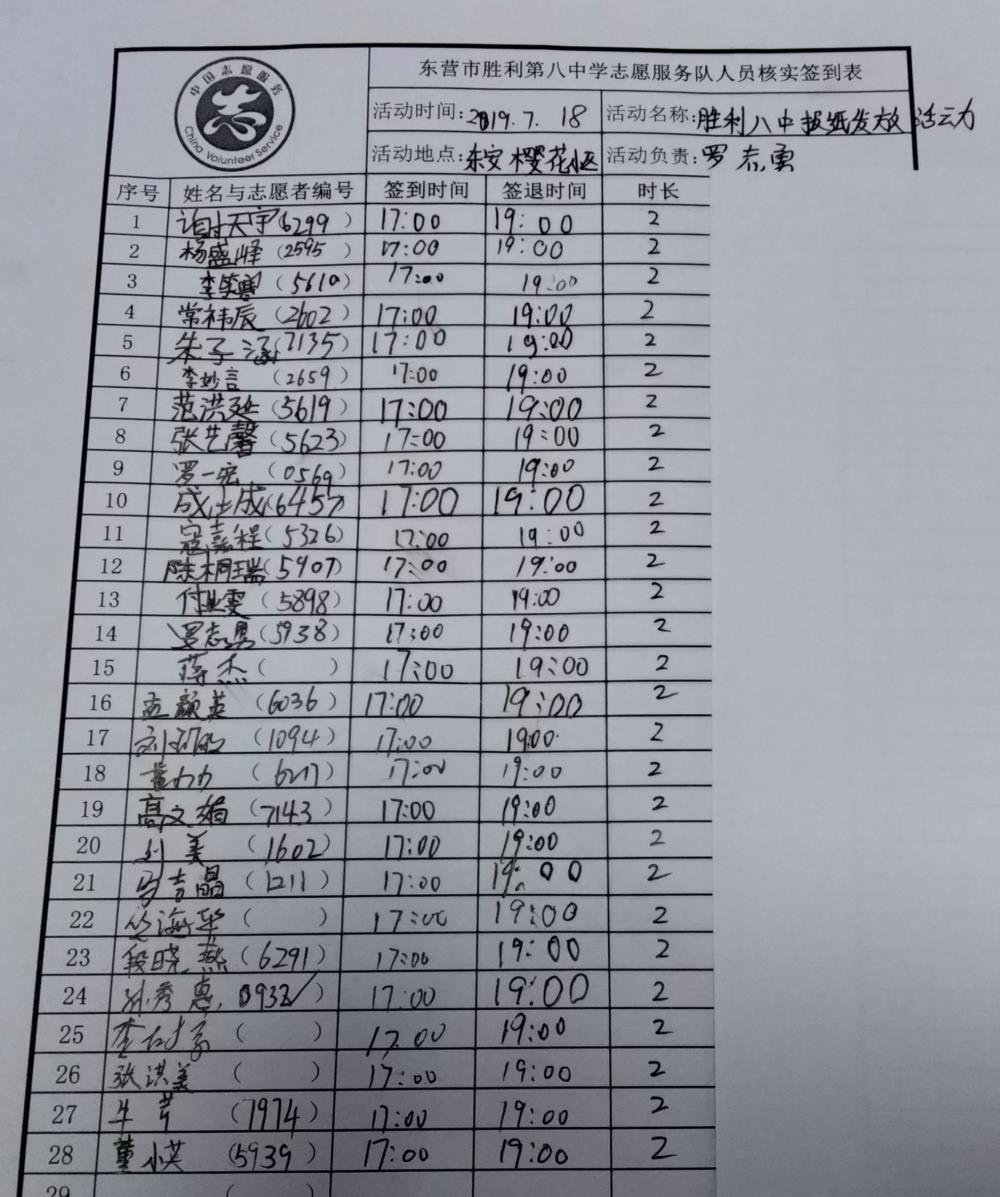 中国志愿服务
志
China Volunteer Service
东营市胜利第八中学志愿服务队人员核实签到表
活动时间:2019.7.18 活动名称:胜利八中报纸发放活动
活动地点:东安樱花小区 活动负责:罗志勇
序号 姓名与志愿者编号 签到时间 签退时间 时长
1 谢天宇(6299) 17:00 19:00 2
2 杨盛烽(2595) 17:00 19:00 2
3 (5610) 17:00 19:00 2
4 常祎辰(2602) 17:00 19:00 2
5 朱子涵(7135) 17:00 19:00 2
6 李妙言(2659) 17:00 19:00 2
7 范洪延(5619) 17:00 19:00 2
8 张艺馨(5623) 17:00 19:00 2
9 罗一宸(0569) 17:00 19:00 2
10 成成(6457) 17:00 19:00 2
11 寇嘉程(5326) 17:00 19:00 2
12 陈桐瑞(5907) 17:00 19:00 2
13 付业雯(5898) 17:00 19:00 2
14 罗志勇(5938) 17:00 19:00 2
15 蒋杰( ) 17:00 19:00 2
16 孟颜英(6036) 17:00 19:00 2
17 刘(1094) 17:00 19:00 2
18 董力力(6217) 17:00 19:00 2
19 高文娟(7143) 17:00 19:00 2
20 刘美(1602) 17:00 19:00 2
21 马吉晶(1211) 17:00 19:00 2
22 海华( ) 17:00 19:00 2
23 段晓燕(6291) 17:00 19:00 2
24 孙秀惠(0932) 17:00 19:00 2
25 李( ) 17:00 19:00 2
26 张洪美( ) 17:00 19:00 2
27 牛芹(7974) 17:00 19:00 2
28 董小英(5939) 17:00 19:00 2
29 ( )